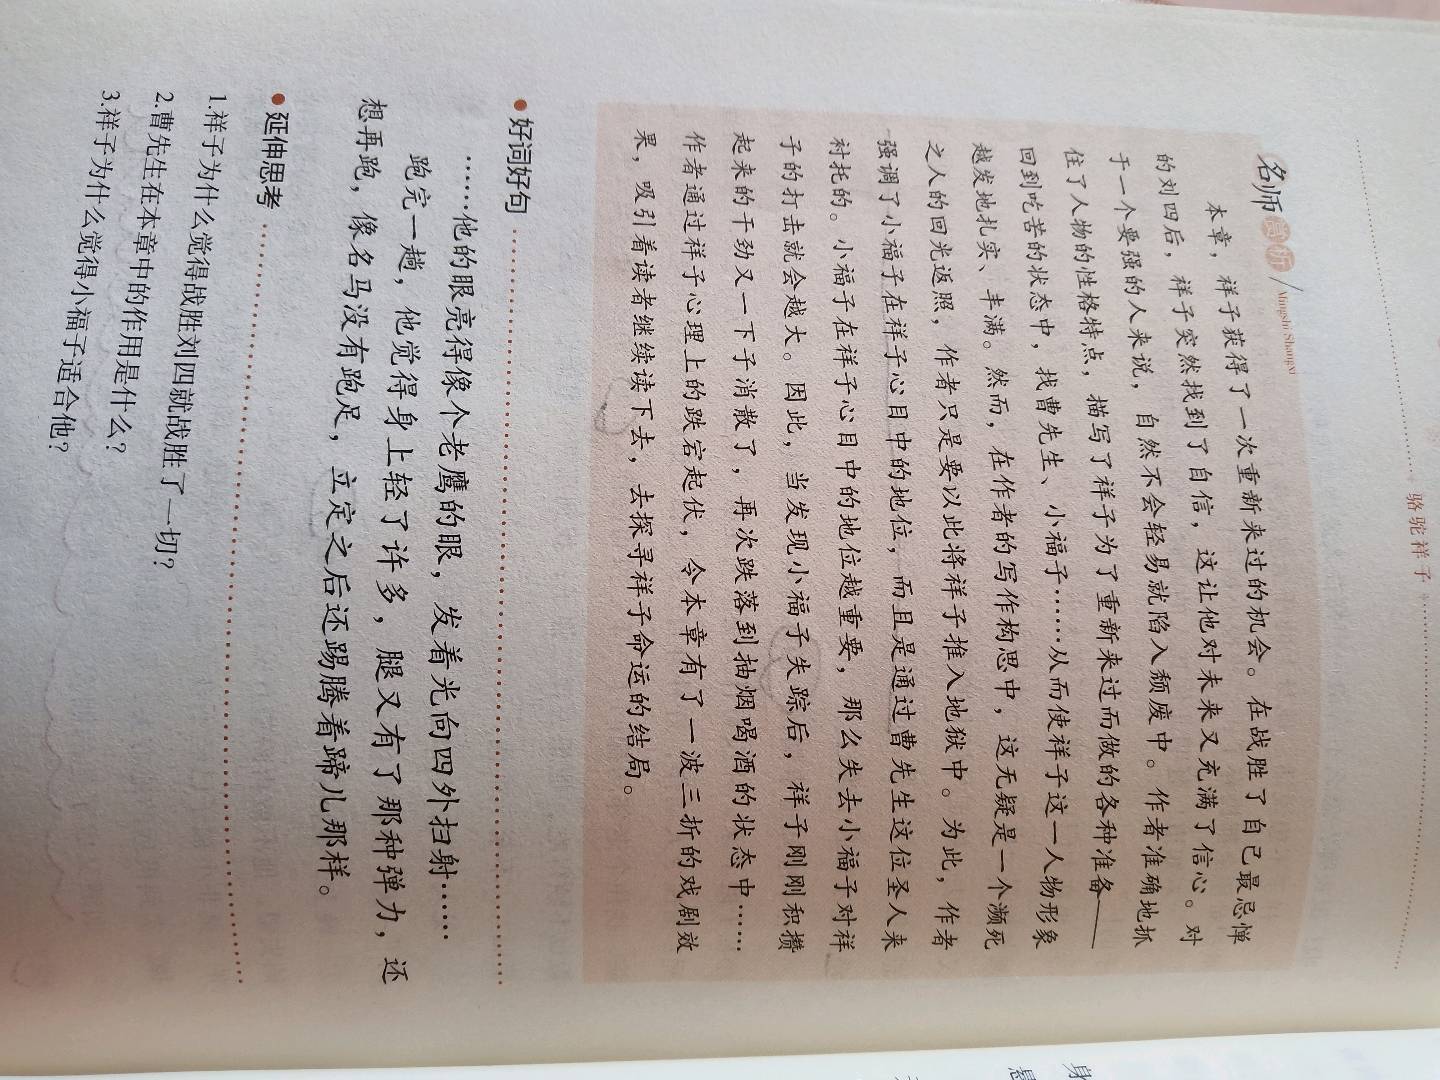 骆驼祥子
名师赏析 Mingshi Shangxi
本章，祥子获得了一次重新来过的机会。在战胜了自己最忌惮
的刘四后，祥子突然找到了自信，这让他对未来又充满了信心。对
于一个要强的人来说，自然不会轻易就陷入颓废中。作者准确地抓
住了人物的性格特点，描写了祥子为了重新来过而做的各种准备——
回到吃苦的状态中，找曹先生、小福子……从而使祥子这一人物形象
越发地扎实、丰满。然而，在作者的写作构思中，这无疑是一个濒死
之人的回光返照，作者只是要以此将祥子推入地狱中。为此，作者
强调了小福子在祥子心目中的地位，而且是通过曹先生这位圣人来
衬托的。小福子在祥子心目中的地位越重要，那么失去小福子对祥
子的打击就会越大。因此，当发现小福子失踪后，祥子刚刚积攒
起来的干劲又一下子消散了，再次跌落到抽烟喝酒的状态中……
作者通过祥子心理上的跌宕起伏，令本章有了一波三折的戏剧效
果，吸引着读者继续读下去，去探寻祥子命运的结局。
好词好句
……他的眼亮得像个老鹰的眼，发着光向四外扫射……
跑完一趟，他觉得身上轻了许多，腿又有了那种弹力，还
想再跑，像名马没有跑足，立定之后还踢腾着蹄儿那样。
延伸思考
1.祥子为什么觉得战胜刘四就战胜了一切？
2.曹先生在本章中的作用是什么？
3.祥子为什么觉得小福子适合他？
身